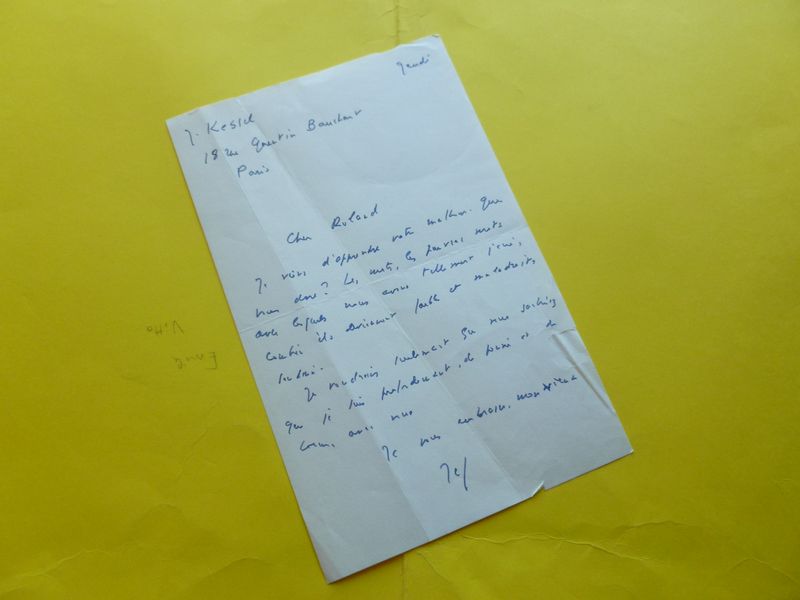 Jeudi
J. Kessel
18 rue Quentin Bauchart
Paris
Cher Roland
Je viens d'apprendre votre malheur. Que
vous dire ? Les mots, les pauvres mots
avec lesquels nous avons tellement joué,
combien ils deviennent faible et maladroits
Je voudrais seulement que vous sachiez
que je suis profondément, de pensée et de
coeur, avec vous
Je vous embrasse, mon vieux
Jef